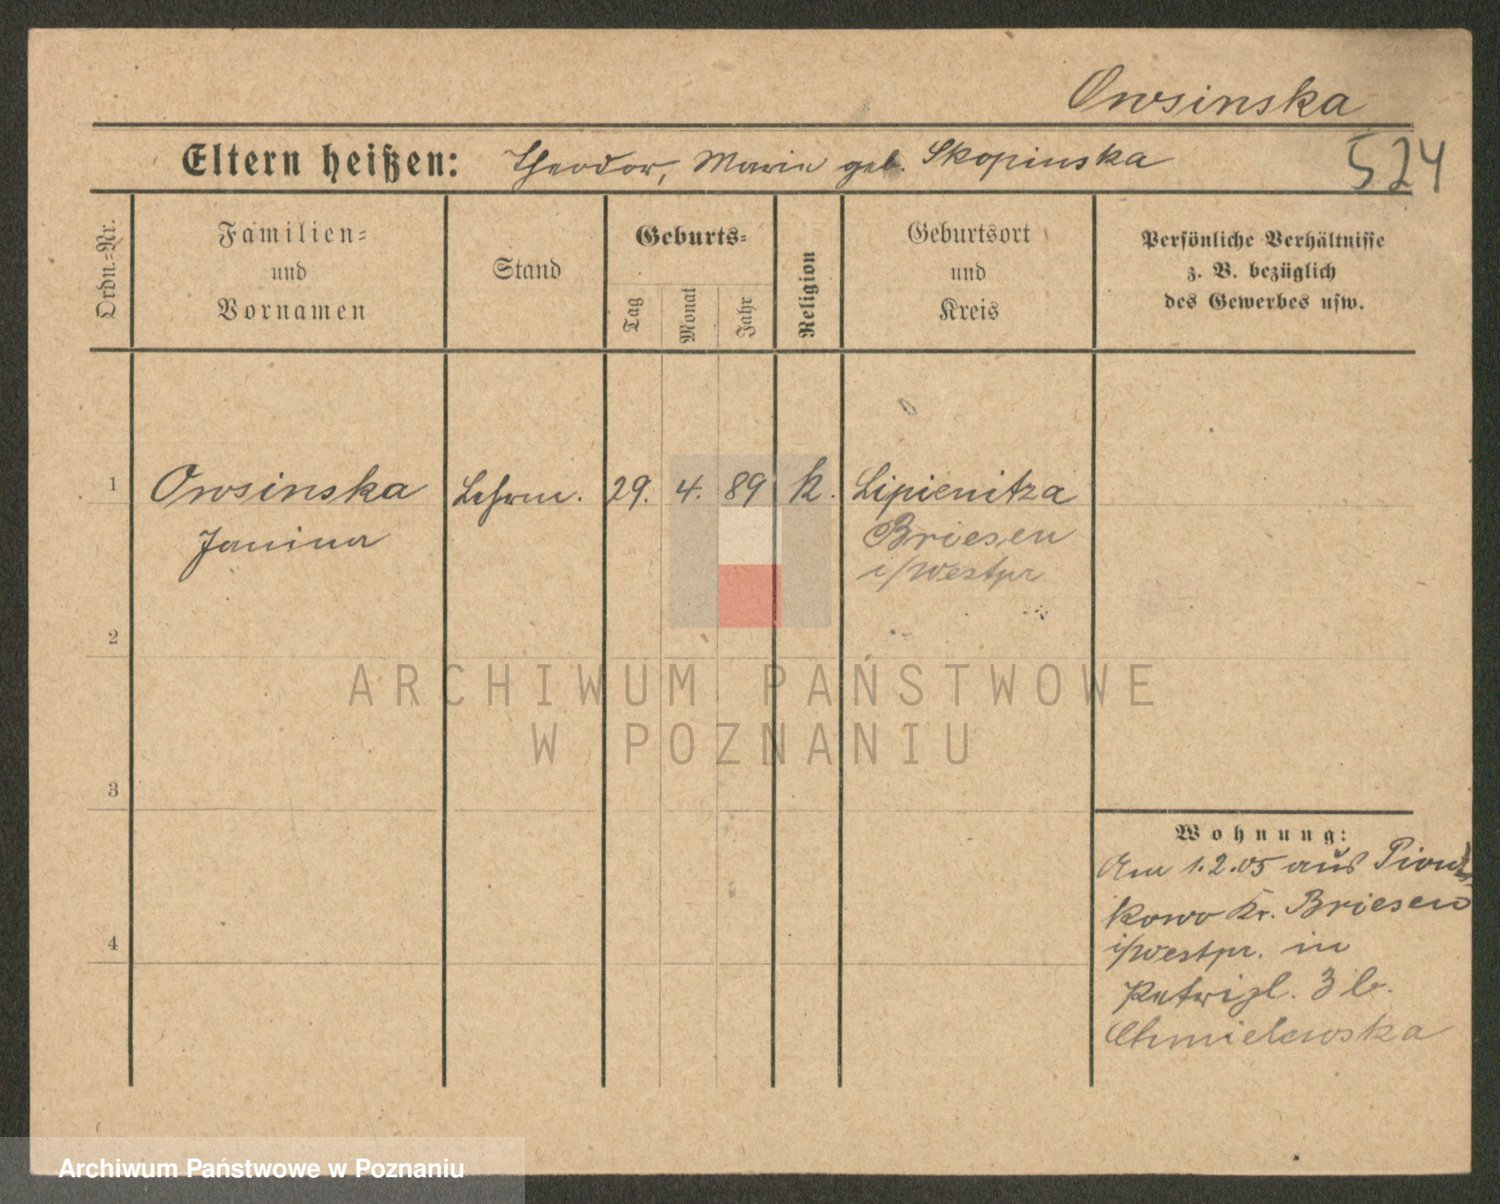 Owsinska
Eltern heißen: Theodor, Marie geb. Skopinska
524
Ordn.=Nr.
Familien=
und
Vornamen
Stand
Geburts=
Tag
Monat
Jahr
Religion
Geburtsort
und
Kreis
Persönliche Verhältnisse
z. B. bezüglich
des Gewerbes usw.
1 Owsinska Lehrm. 29. 4. 89 k. Lipienitza
Janina Briesen
i/Westpr
2
ARCHIWUM PAŃSTWOWE
W POZNANIU
3
Wohnung:
Am 1.2.05 aus
kowo Kr. Briesen
4
i/Westpr. in
3 b.
Chmielewska
Archiwum Państwowe w Poznaniu